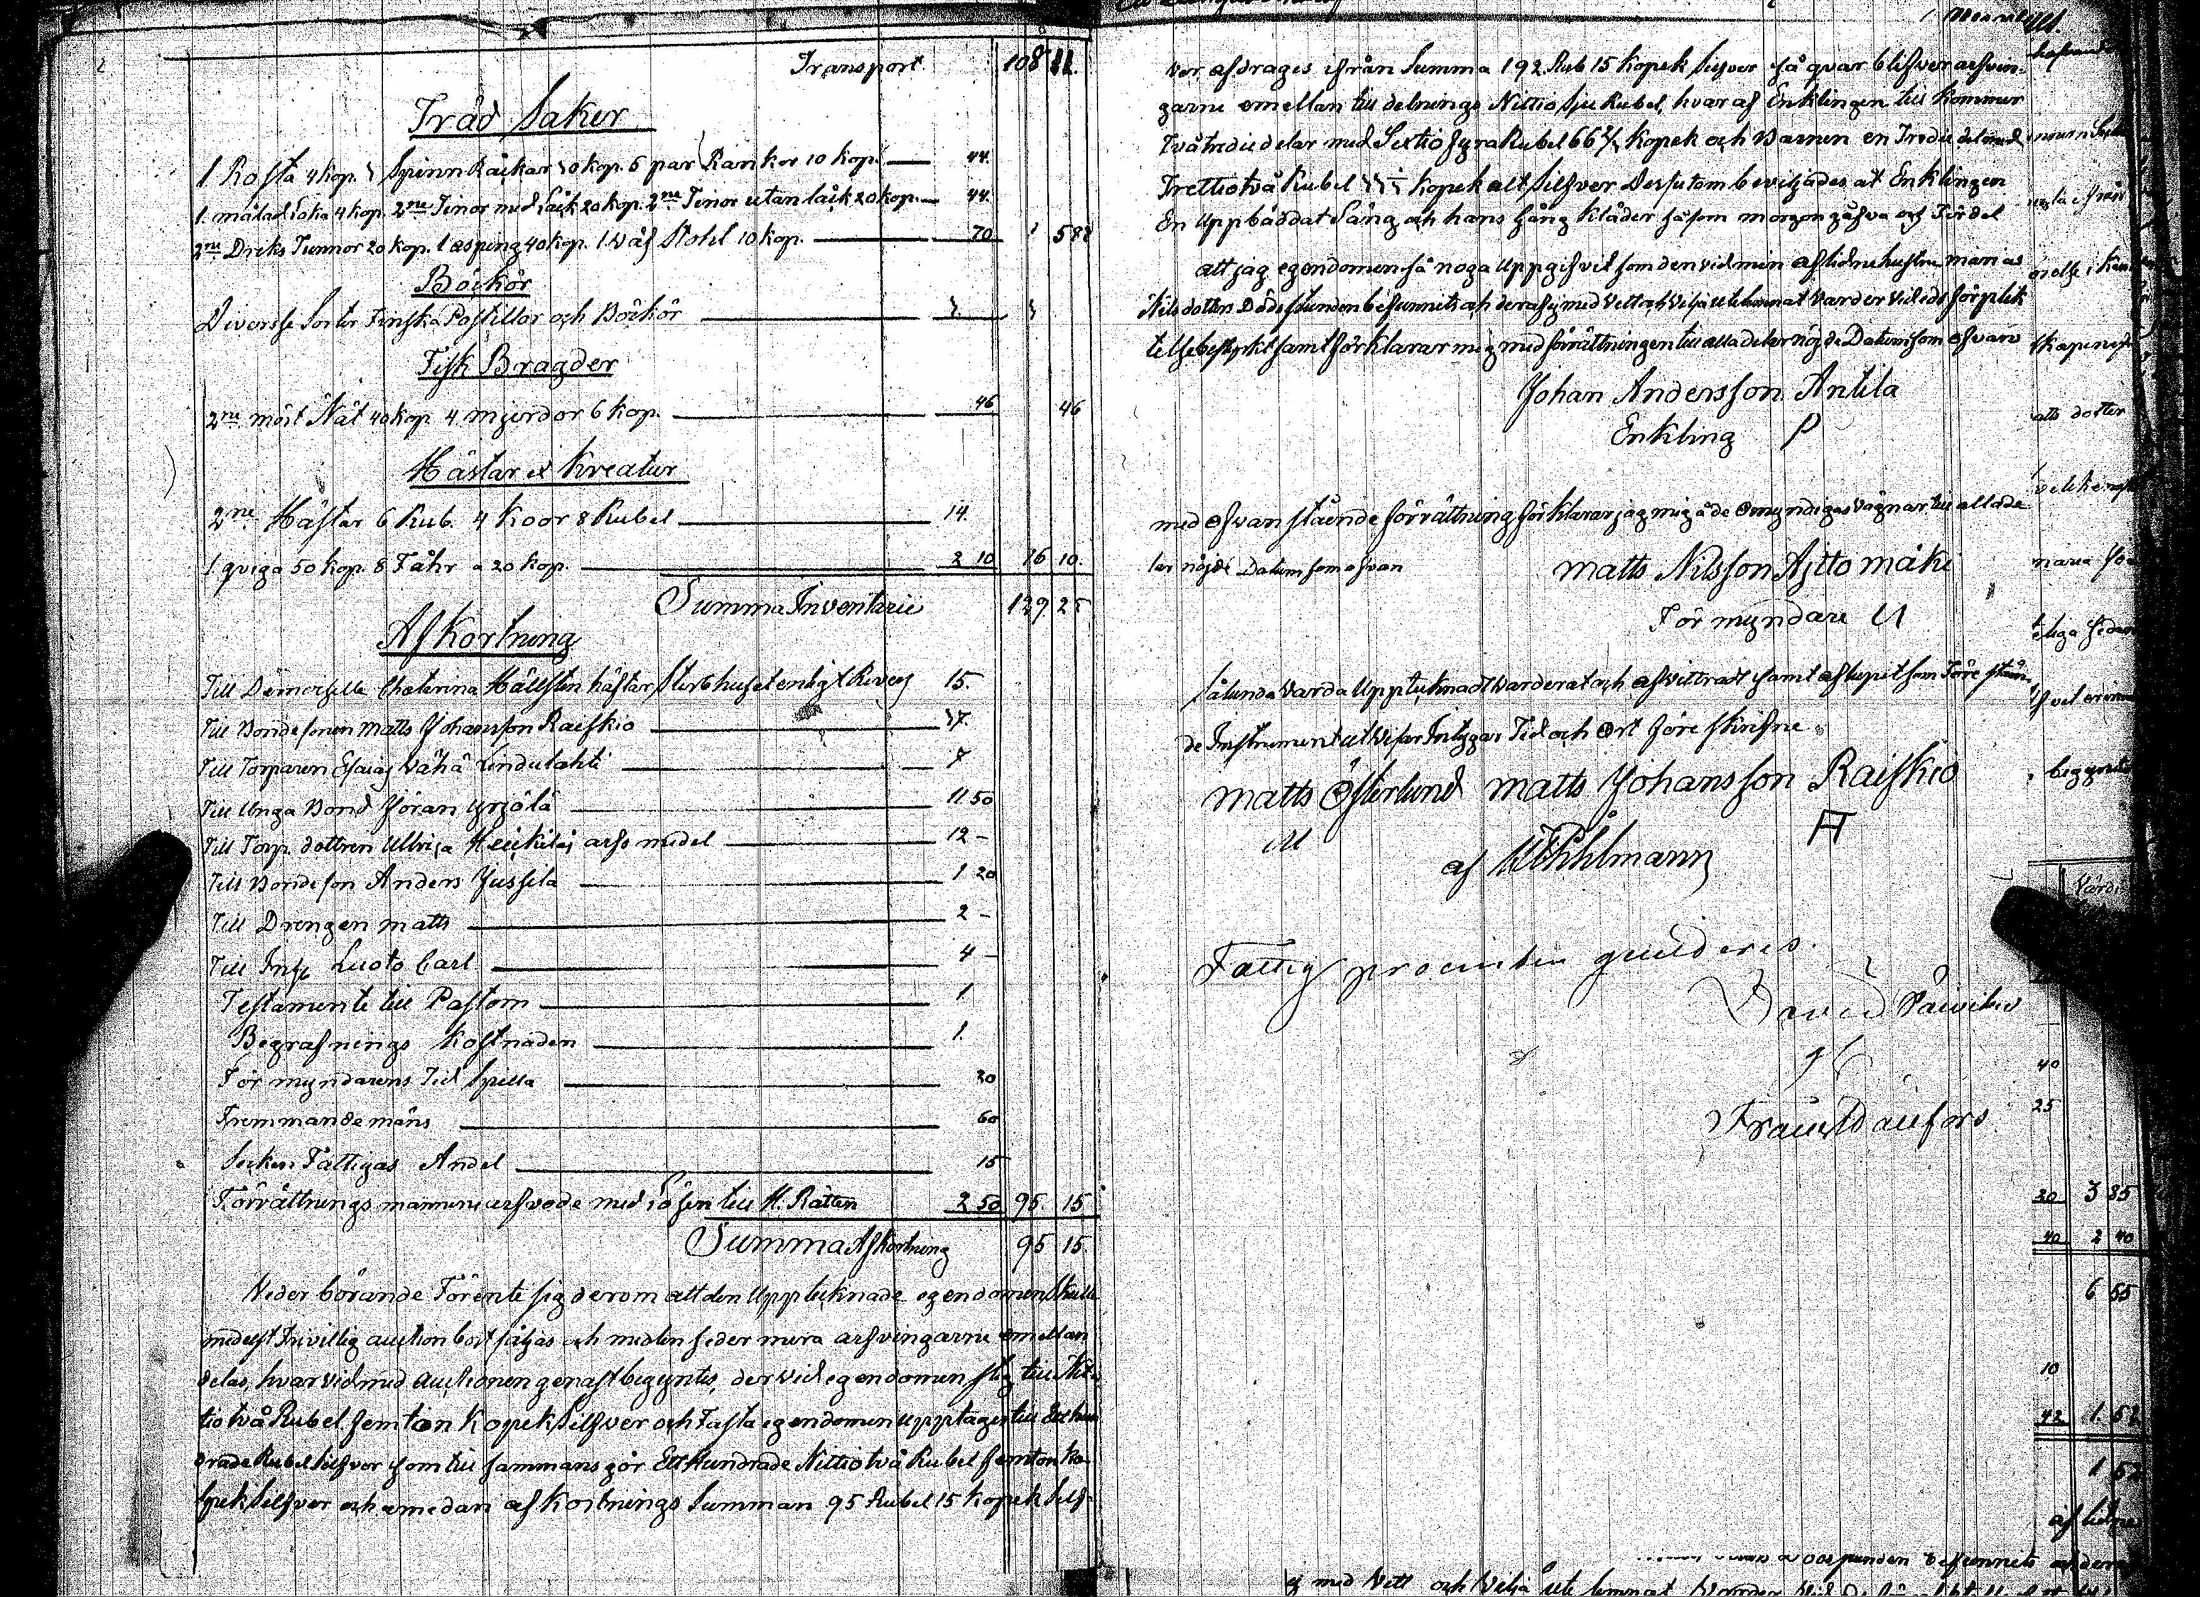 Transport 108 11.
Träd Saker
1 Rosta 4 kop. 3 Spinn Råckar 30 kop. 5 par Rankor 10 kop. 44.
1. målad Loka 4 kop. 2ne Tinor med Låck 20 kop. 2ne Tinor utan låck 20 kop. 44.
2ne Dricks Tunnor 20 kop. 1 asping 40 kop. 1 Wäf Stohl 10 kop. 70 1 58
Böckör
Diversse Sorter Finska Postillor och Böckör 3. 3
Fisk Bragder
2ne mört Nät 40 kop. 4 mjerdor 6 kop. 46 46
Hästar et Kreatur
2ne Hästar 6 Rub. 4 Koor 8 Rubel 14.
1. qviga 50 kop. 8 Fåhr a 20 kop. 2 10 16 10.
Summa Inventarii 129 25
Afkortning
Till Demoiselle Chaterina Hällsten häftar Sterbhuset enligt Revers 15.
Till Bondesonen Matts Johansson Raiskio 37.
Till Torparen Esaias Vähä Lindulahti 7
Till Unga Bond Jöran Yrjälä 11 50
Till Torp. dottren Ullrica Heickilas arfs medel 12 –
Till Bondeson Anders Jussila 1 20
Till Drengen matts 2 –
Till Luoto Carl 4 –
Testamente till Pastorn 1
Begrafnings Kostnaden 1.
Förmyndarens Tid Spilla 20
Fremmande mäns 60
Socken Fattigas Andel 15
Förrättnings männens arfvode med Lösen till H. Rätten 2 50 95. 15
Summa Afkortning 95 15.
Vederbörande Förente sig derom att den Upptecknade egendomen Skulle
medelst Frivillig auction bort säljas och medlen sedermera arfvingarne emellan
delas, hvarvid med auctionen genast begyntes, dervid egendomen steg till Nit-
tio två Rubel femton Kopek Silfver och Fasta egendomen upptages till Ett hun
drade Rubel Silfver som till sammans gör Ett Hundrade Nittio två Rubel femton ko-
pek Silfver och emedan afkortnings Summan 95 Rubel 15 Kopek Silf-
ver afdrages ifrån Summa 192 Rub 15 Kopek Silfver så qvar blifver arfvin-
garne emellan till delnings Nittio Sju Rubel, hvaraf Enklingen till kommer
Två tredie delar med Sextio fyra Rubel 66 2/3 Kopek och Barnen en Tredie del med
Trettiotvå Rubel 33 1/3 Kopek alt Silfver Dessutom beviljades åt Enklingen
En Uppbäddat Säng och hans Gång Kläder såsom morgongåfva och Fördel
att jag egendomen så noga Uppgifvit som den vid min aflidne hustru marias
Nils dotters Dödsstunden befunnits och deraf ej med Vett och Vilja utelemnat varder vid eds förplick
telse bestyrkt samt förklarar mig med förrättningen till alla delar nöjd Datum som ofvan
Johan Andersson Antila
Enkling P
med ofvanstående förrättning förklarar jag mig å de omyndigas vägnar till alla de
lar nöjde Datum som ofvan
Matts Nilsson Ajttomäki
Förmyndare U
Sålunda varda Upptecknadt Warderat och afvittradt samt aflupit som Före ståen-
de Instrument utwisar Intygar Tid och Ort före skrifne
Matts Österlund Matts Johansson Raiskio
M A
af
Fattig procenten qvitteras.
David
Värdi
40
25
20 3 85
40 2 40
6 55
10
42 1 52
1 52
aflidne
befunnits
ej med Vett och Vilja ute lemnat Varder